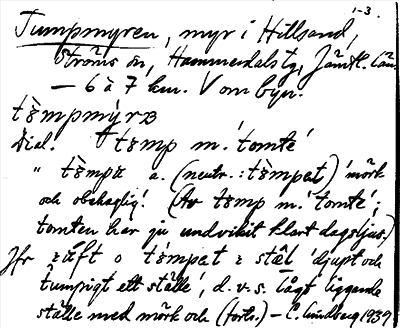 1-3.
Tumpmyren, myr i Hillsand,
Ströms sn, Hammerdals tg, Jämtl. län
— 6 à 7 km. V om byn.
tòmpmýrɜ
Dial. tomp m. 'tomte'
" tòmpɜ a. (neutr.: tòmpet) 'mörk
och obehaglig'. (Av tomp m. 'tomte';
tomten har ju undvikit klart dagsljus.)
Jfr o tómpet stäl 'djupt och
tumpigt ett ställe', d.v.s. lågt liggande
ställe med mörk och (forts.) — C. Lindberg 1939